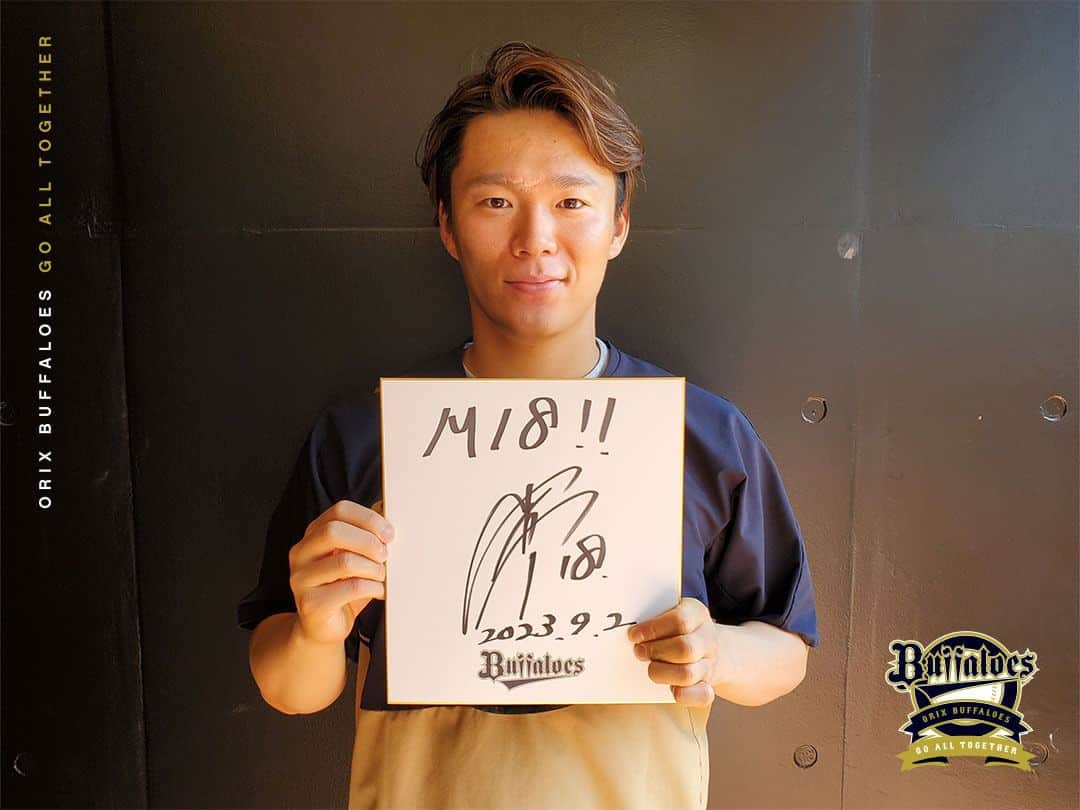 ORIX BUFFALOES GO ALL TOGETHER
M18!!
18.
2023.9.2
Buffaloes
Buffaloes
ORIX BUFFALOES
GO ALL TOGETHER